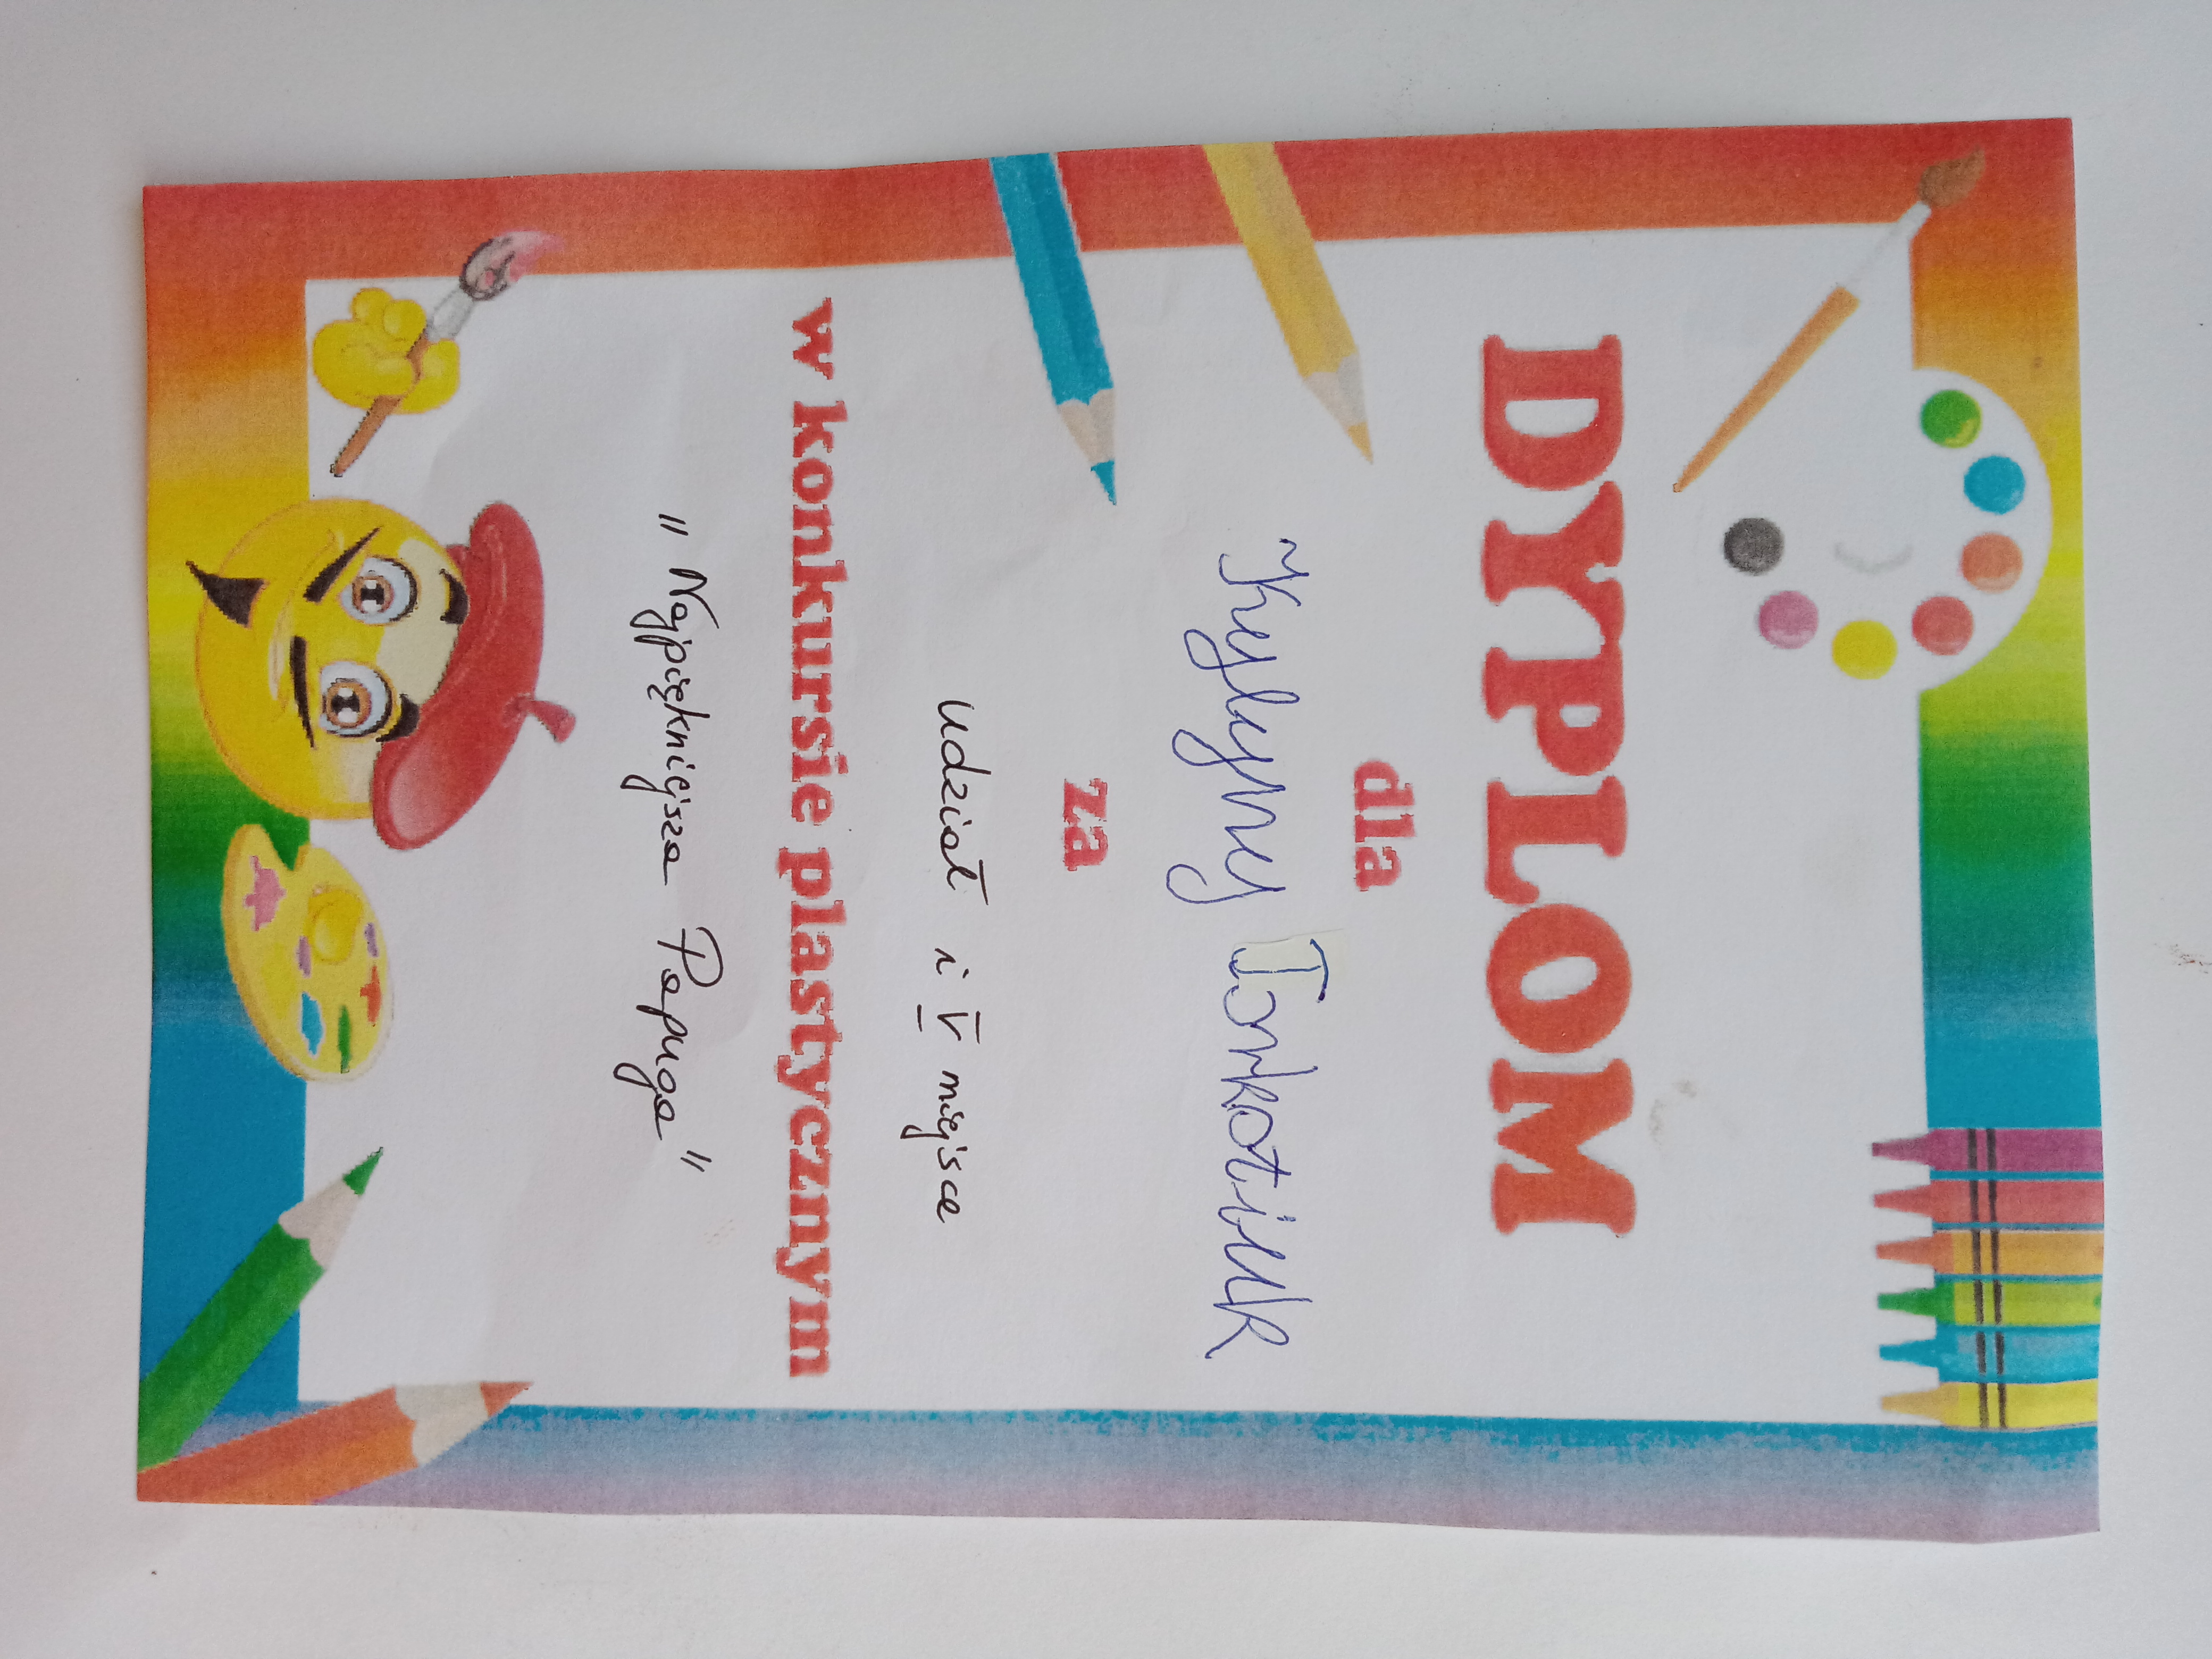 DYPLOM
dla
Kylyny
za
udział i V miejsce
w konkursie plastycznym
„Najpiękniejsza Papuga”